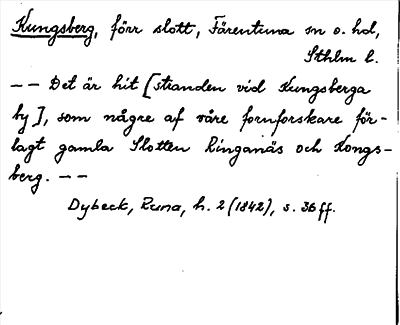 Kungsberg, förr slott, Färentuna sn o. hd,
Sthlm l.
-- Det är hit [stranden vid Kungsberga
by], som några af våre fornforskare för-
lagt gamla Slotten Ringanäs och Kongs-
berg. --
Dybeck, Runa, h. 2 (1842), s. 36 ff.